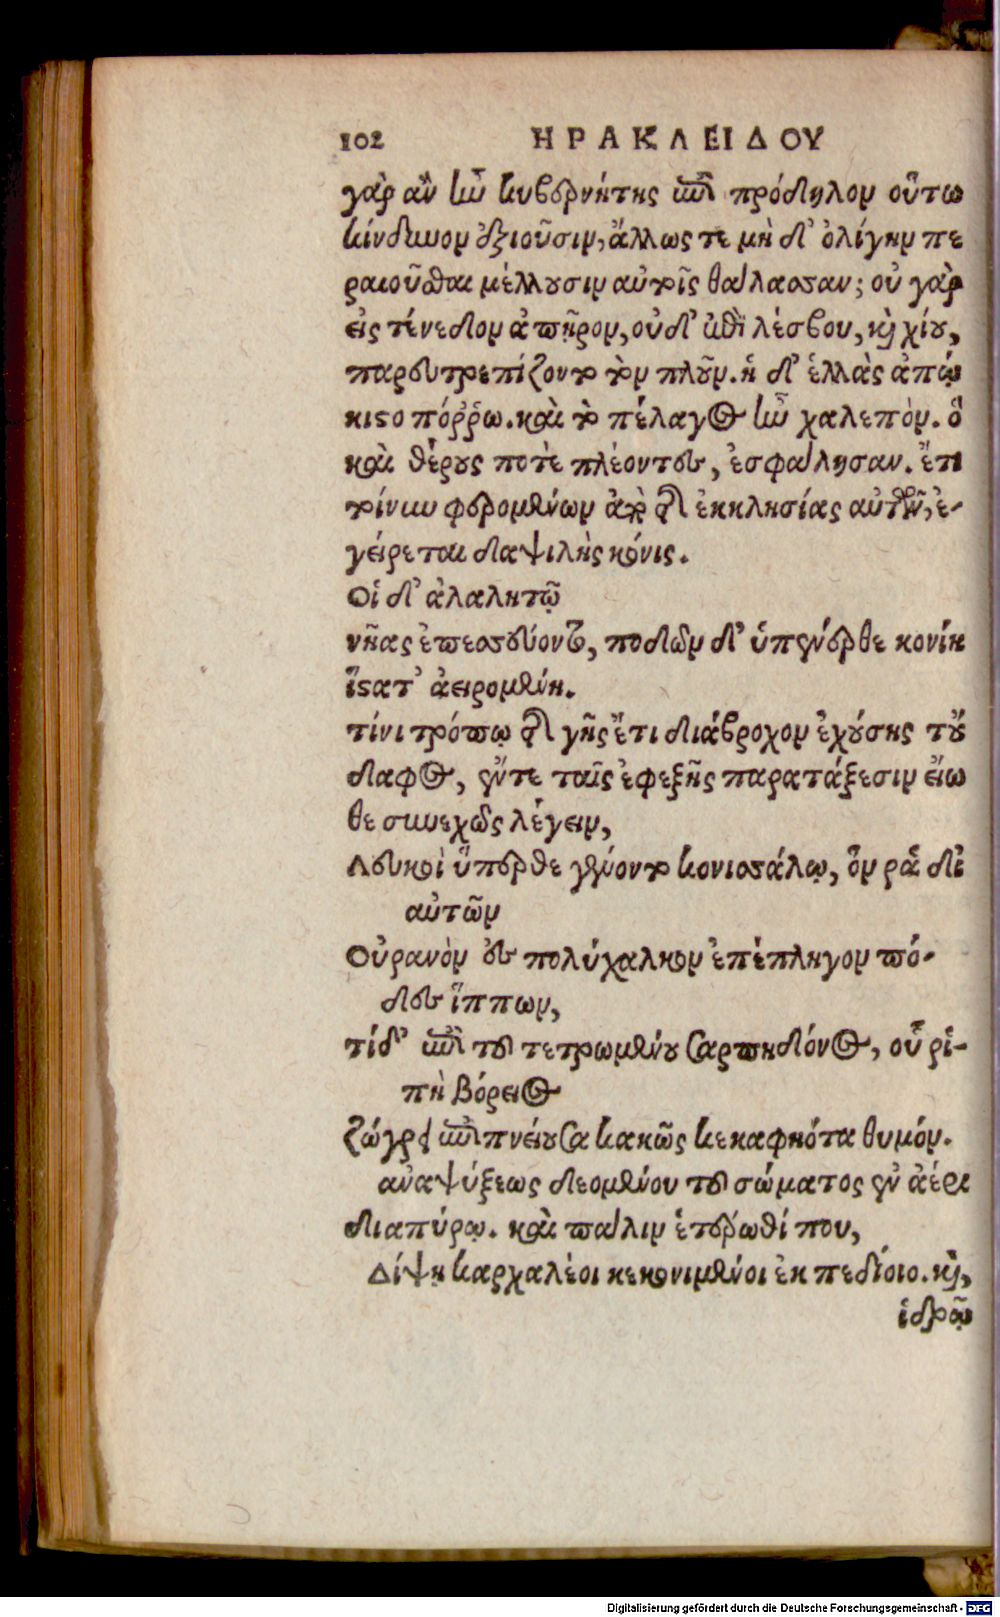 102 ΗΡΑΚΛΕΙΔΟΥ
γὰρ ἂν ἦν κυβερνήτης ἐπὶ πρόδηλον οὕτω
κίνδυνον ἐξιοῦσιν, ἄλλως τε μὴ δ' ὀλίγην πε
ραιοῦσθαι μέλλουσιν αὐτοῖς θάλασσαν; οὐ γὰρ
εἰς τένεδον ἀπῇρον, οὐδ' ἐπὶ λέσβου, καὶ χίου,
παρευτρεπίζοντο τὸν πλοῦν. ἡ δ' ἑλλὰς ἀπῴ
κιστο πόῤῥω. καὶ τὸ πέλαγος ἦν χαλεπόν. ὃ
καὶ θέρους ποτὲ πλέοντες, ἐσφάλησαν. ἔτι
τοίνυν φερομένων ἀπὸ τῆς ἐκκλησίας αὐτῶν, ἐ-
γείρεται δαψιλὴς κόνις.
Οἱ δ' ἀλαλητῷ
νῆας ἐπεσσεύοντο, ποδῶν δ' ὑπένερθε κονίη
ἵστατ' ἀειρομένη.
τίνι τρόπῳ τῆς γῆς ἔτι διάβροχον ἐχούσης τοὔ
δαφος, ἔν τε ταῖς ἐφεξῆς παρατάξεσιν εἴω
θε συνεχῶς λέγειν,
Λευκοὶ ὕπερθε γένοντο κονισσάλῳ, ὅν ῥα δι'
αὐτῶν
Οὐρανὸν ἐς πολύχαλκον ἐπέπληγον πό-
δες ἵππων,
τί δ' ἐπὶ τοῦ τετρωμένου Σαρπηδόνος, οὗ ῥι-
πὴ βόρειος
ζώγρει ἐπιπνείουσα κακῶς κεκαφηότα θυμόν.
ἀναψύξεως δεομένου τοῦ σώματος ἐν ἀέρι
διαπύρῳ. καὶ πάλιν ἑτέρωθί που,
Δίψῃ καρχαλέοι κεκονιμένοι ἐκ πεδίοιο. καὶ,
ἱδρῷ
Digitalisierung gefördert durch die Deutsche Forschungsgemeinschaft - DFG